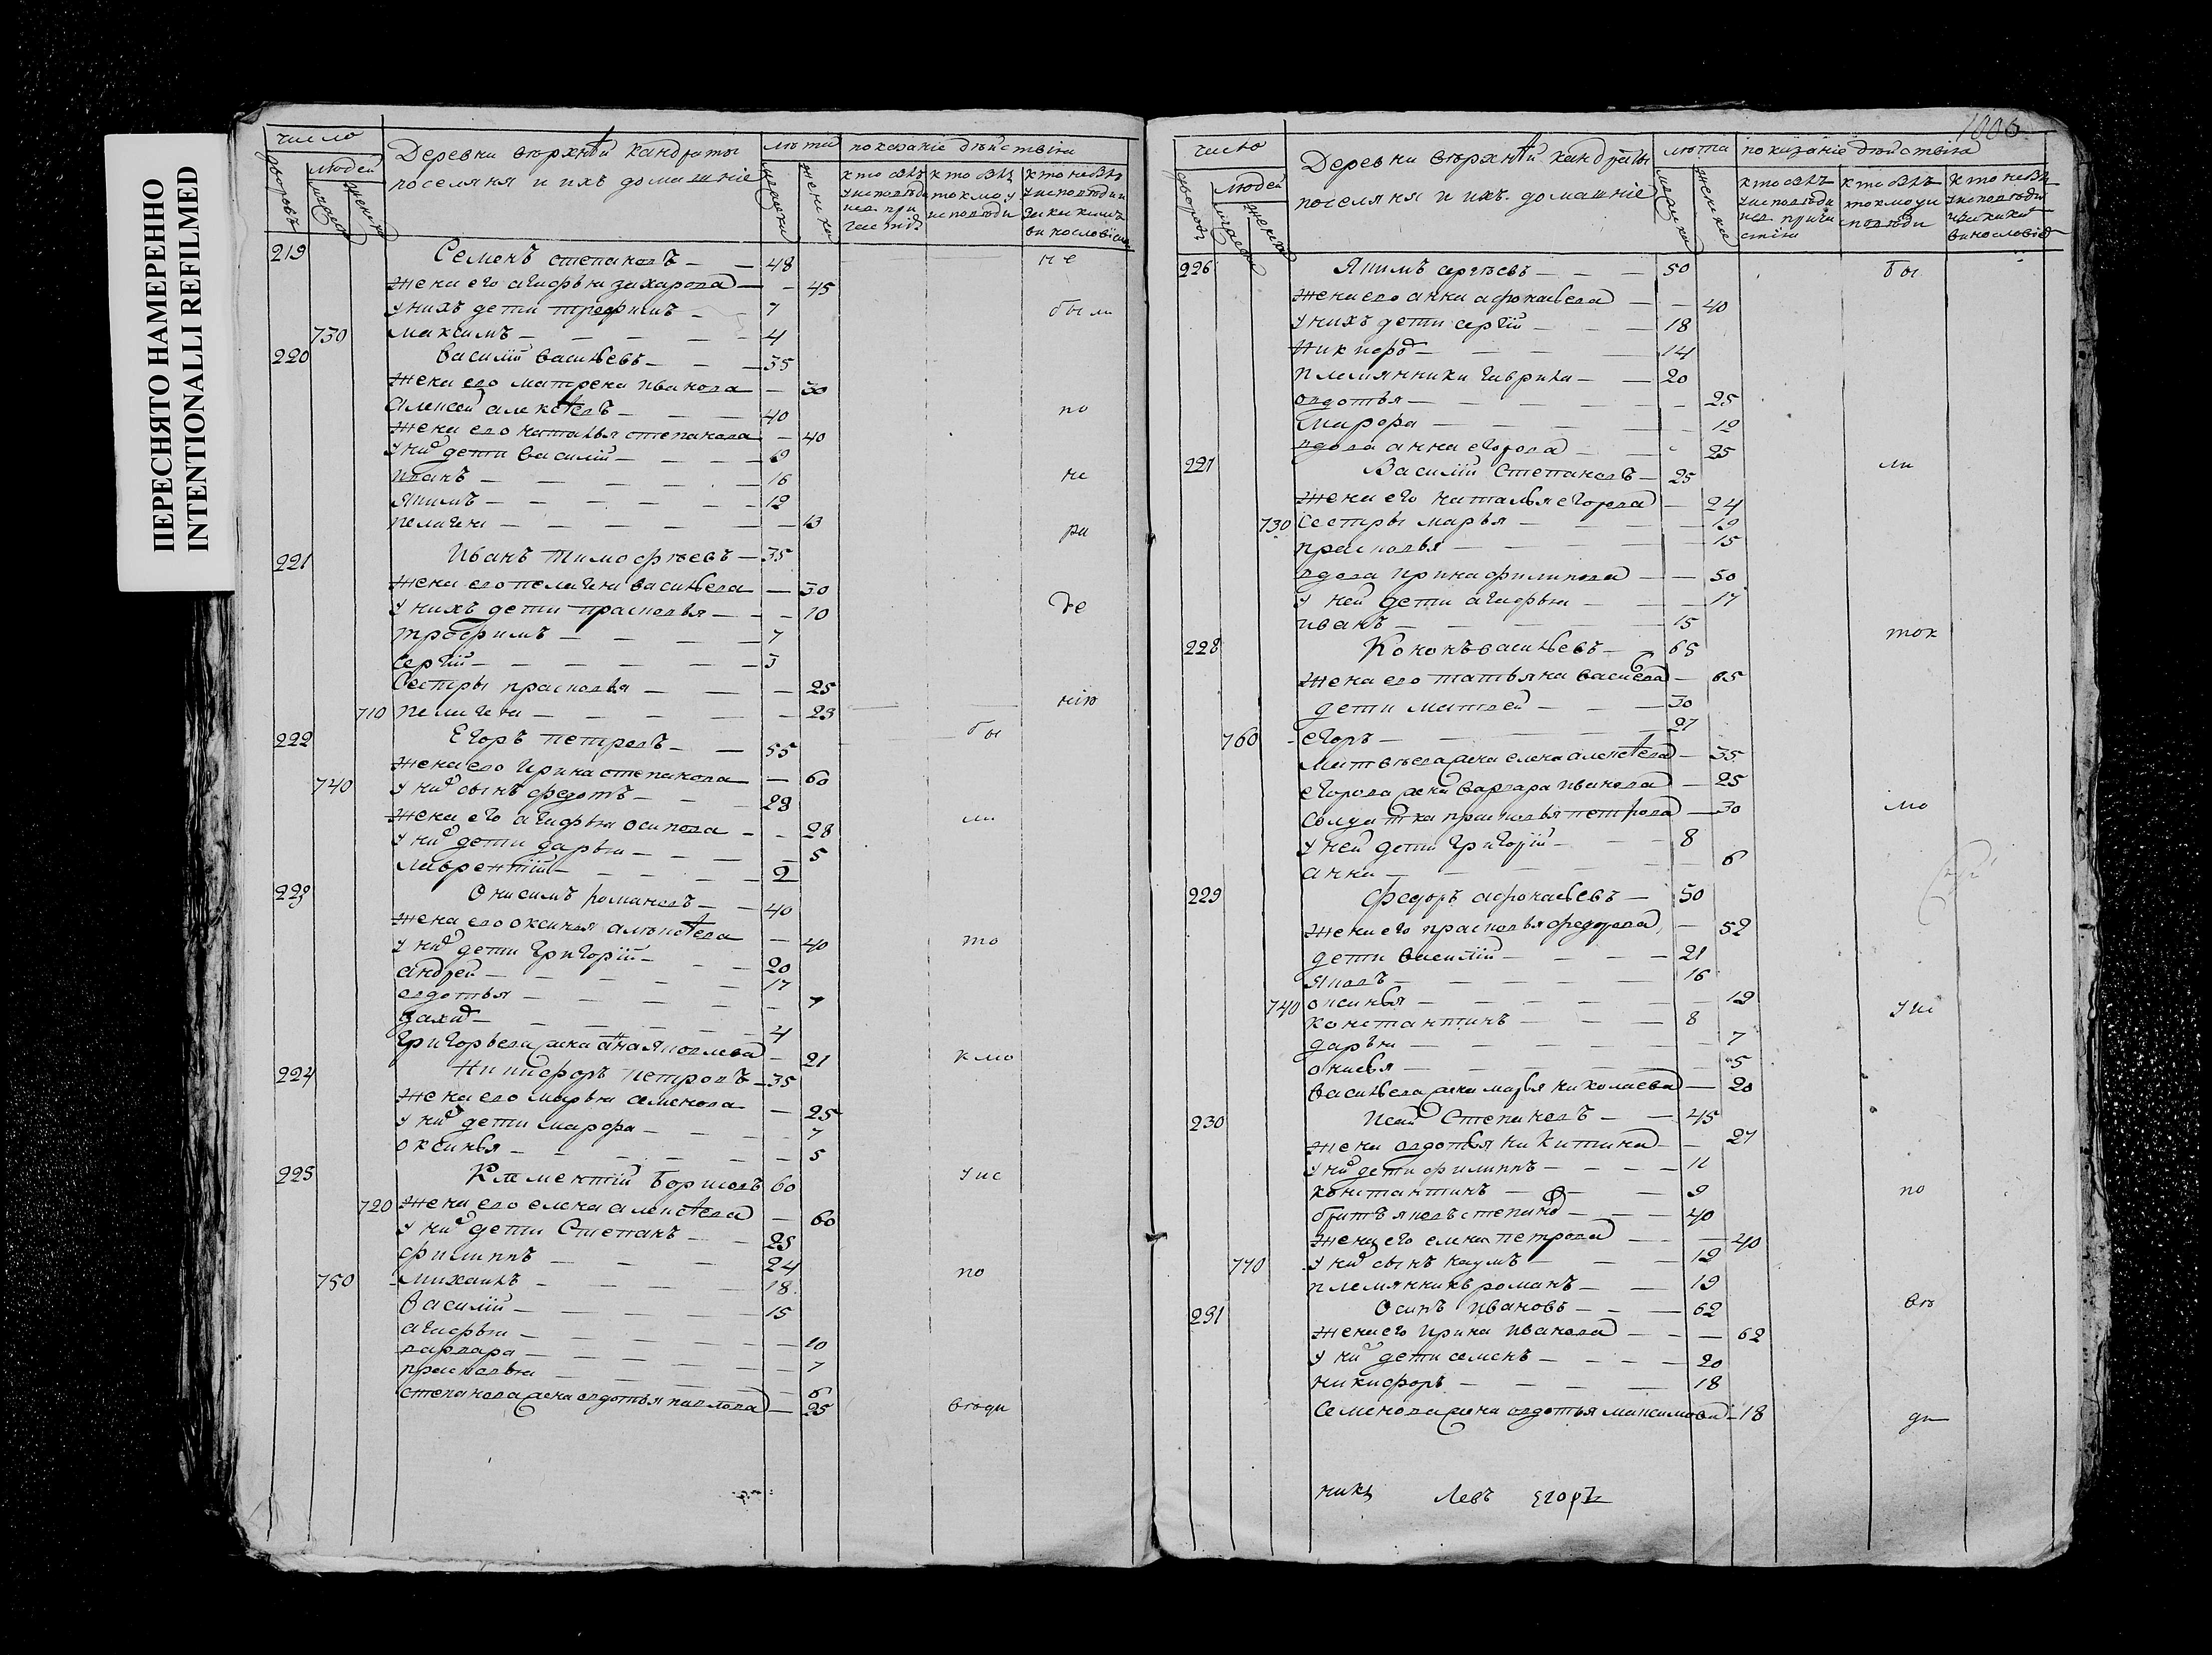 ПЕРЕСНЯТО НАМЕРЕННО
INTENTIONALLI REFILMED
число
дворовъ
людей
Деревни верхнѣй кандраты
поселяня и ихъ домашніе
лѣта
показаніе дѣйствіи
219 Семенъ степановъ 48 не
жена его агафья захарова 45
у нихъ дети трефимъ 7 были
730 максимъ 4
220 василій васильевъ 35
жена его матрена иванова 30
алексей алексѣевъ 40 по
жена его наталья степанова 40
у них дети василій 19
иванъ 16 не
якимъ 12
пелагея 13
ра
221 Иванъ тимофѣевъ 35
жена его пелагея васильева 30
у нихъ дети прасковья 10 де
трофимъ 7
сергій 3
сестры прасковья 25
710 пелагея 23 нію
222 Егоръ петровъ 55 бы
жена его ирина степанова 60
740 у них сынъ федотъ 28
жена его агафья осипова 28 ли
у них дети дарья 5
лаврентій 2
223 Онисимъ романовъ 40
жена его оксинья алексѣева 40
у них дети григорій 20 то
андрей 17
авдотья 7
4
григорьева жена анна яковлева 21 кмо
224 Никифоръ петровъ 35
жена его марья семенова 25
у них дети мавра 7
оксинья 5
225 Клементій борисовъ 60 уис
720 жена его елена алексѣева 60
у них дети степанъ 25
филиппъ 24
750 михаилъ 18 по
василій 15
агафья 10
варвара 7
прасковья 6
степанова жена авдотья павлова 25 вѣди
1006
число
дворовъ
людей
Деревни верхнѣй кандраты
поселяня и ихъ домашніе
лѣта
показаніе дѣйствіи
226 Якимъ сергѣевъ 50 бы
жена его анна афонасьева 40
у нихъ дети сергій 18
никифор 14
племянники гаврила 20
авдотья 25
мавра 12
вдова анна егорова 25
227 Василій Степановъ 25 ли
жена его наталья егорова 24
730 сестры марья 19
прасковья 15
вдова ирина филипова 50
у ней дети агафья 17
иванъ 15
228 Кононъ васильевъ 65 ток
жена его татьяна васильева 65
дети матвей 30
760 егоръ 27
матвѣева жена елена алексѣева 35
егорова жена варвара иванова 25
солдатка прасковья петрова 30 мо
у ней дети григорій 8
анна 6
229 Федоръ афонасьевъ 50
жена его прасковья федорова 52
дети василій 21
яковъ 16
740 оксинья 19 уис
константинъ 8
дарья 7
онисья 5
васильева жена марья николаева 20
230 Исай Степановъ 45
жена авдотья никитина 27
у них дети филиппъ 11
константинъ 9 по
братъ яковъ степанов 40
жена его елена петрова 40
770 у них сынъ наумъ 12
племянникъ романъ 19
231 Осипъ ивановъ 62 вѣ
жена его ирина иванова 62
у них дети семенъ 20
никифоръ 18
семенова жена авдотья максимова 18 ди
Левъ Егоръ